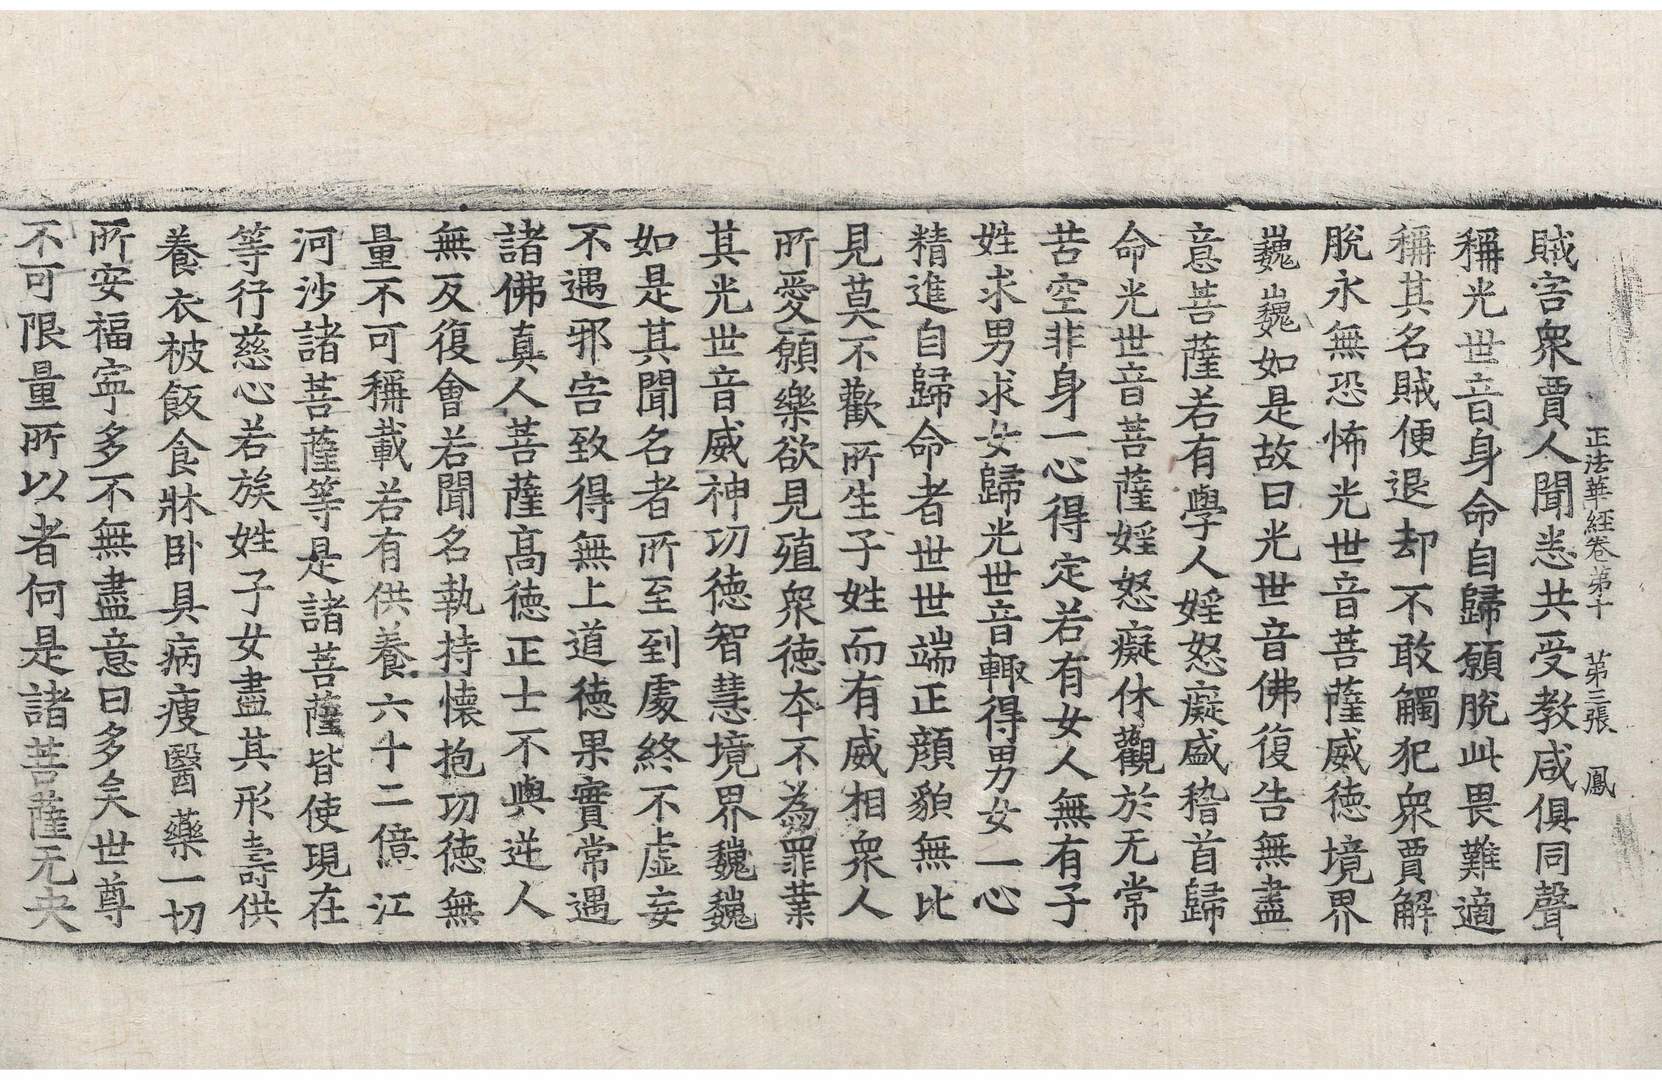 正法華經卷第十　第三張　鳳
賊害衆賈人聞悉共受教咸俱同聲
稱光世音身命自歸願脫此畏難適
稱其名賊便退却不敢觸犯衆賈解
脫永無恐怖光世音菩薩威德境界
巍巍如是故曰光世音佛復告無盡
意菩薩若有學人婬怒癡盛稽首歸
命光世音菩薩婬怒癡休觀於无常
苦空非身一心得定若有女人無有子
姓求男求女歸光世音輙得男女一心
精進自歸命者世世端正顔貌無比
見莫不歡所生子姓而有威相衆人
所愛願樂欲見殖衆德夲不為罪業
其光世音威神功德智慧境界巍巍
如是其聞名者所至到處終不虛妄
不遇邪害致得無上道德果實常遇
諸佛真人菩薩高德正士不與逆人
無反復會若聞名執持懷抱功德無
量不可稱載若有供養六十二億江
河沙諸菩薩等是諸菩薩皆使現在
等行慈心若族姓子女盡其形壽供
養衣被飯食牀臥具病瘦醫藥一切
所安福寧多不無盡意曰多矣世尊
不可限量所以者何是諸菩薩无央